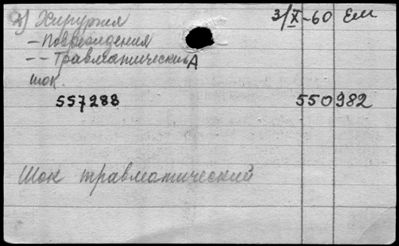 2) Хирургия 3/X-60 Еш
- Повреждения
-- Травматический А
шок.
557288 550982
Шок травматический